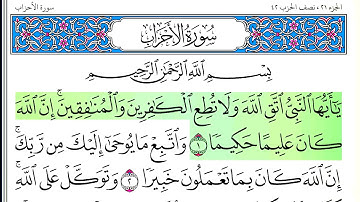 الجزء ٢١، نصف الحزب ٤٢
سورة الأحزاب
سُورَةُ الأَحْزَابِ
بِسْمِ اللَّهِ الرَّحْمَٰنِ الرَّحِيمِ
يَٰٓأَيُّهَا ٱلنَّبِىُّ ٱتَّقِ ٱللَّهَ وَلَا تُطِعِ ٱلْكَٰفِرِينَ وَٱلْمُنَٰفِقِينَ ۗ إِنَّ ٱللَّهَ
كَانَ عَلِيمًا حَكِيمًا ١ وَٱتَّبِعْ مَا يُوحَىٰٓ إِلَيْكَ مِن رَّبِّكَ ۚ
إِنَّ ٱللَّهَ كَانَ بِمَا تَعْمَلُونَ خَبِيرًا ٢ وَتَوَكَّلْ عَلَى ٱللَّهِ ۚ